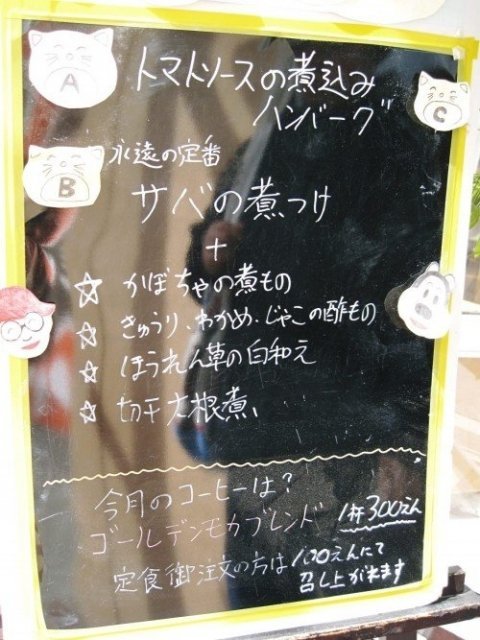 A
トマトソースの煮込み
ハンバーグ
C
B
永遠の定番
サバの煮つけ
+
☆ かぼちゃの煮もの
☆ きゅうり、わかめ・じゃこの酢もの
☆ ほうれん草の白和え
☆ 切干大根煮
今月のコーヒーは?
ゴールデンモカブレンド 1杯300えん
定食御注文の方は100えんにて
召し上がれます